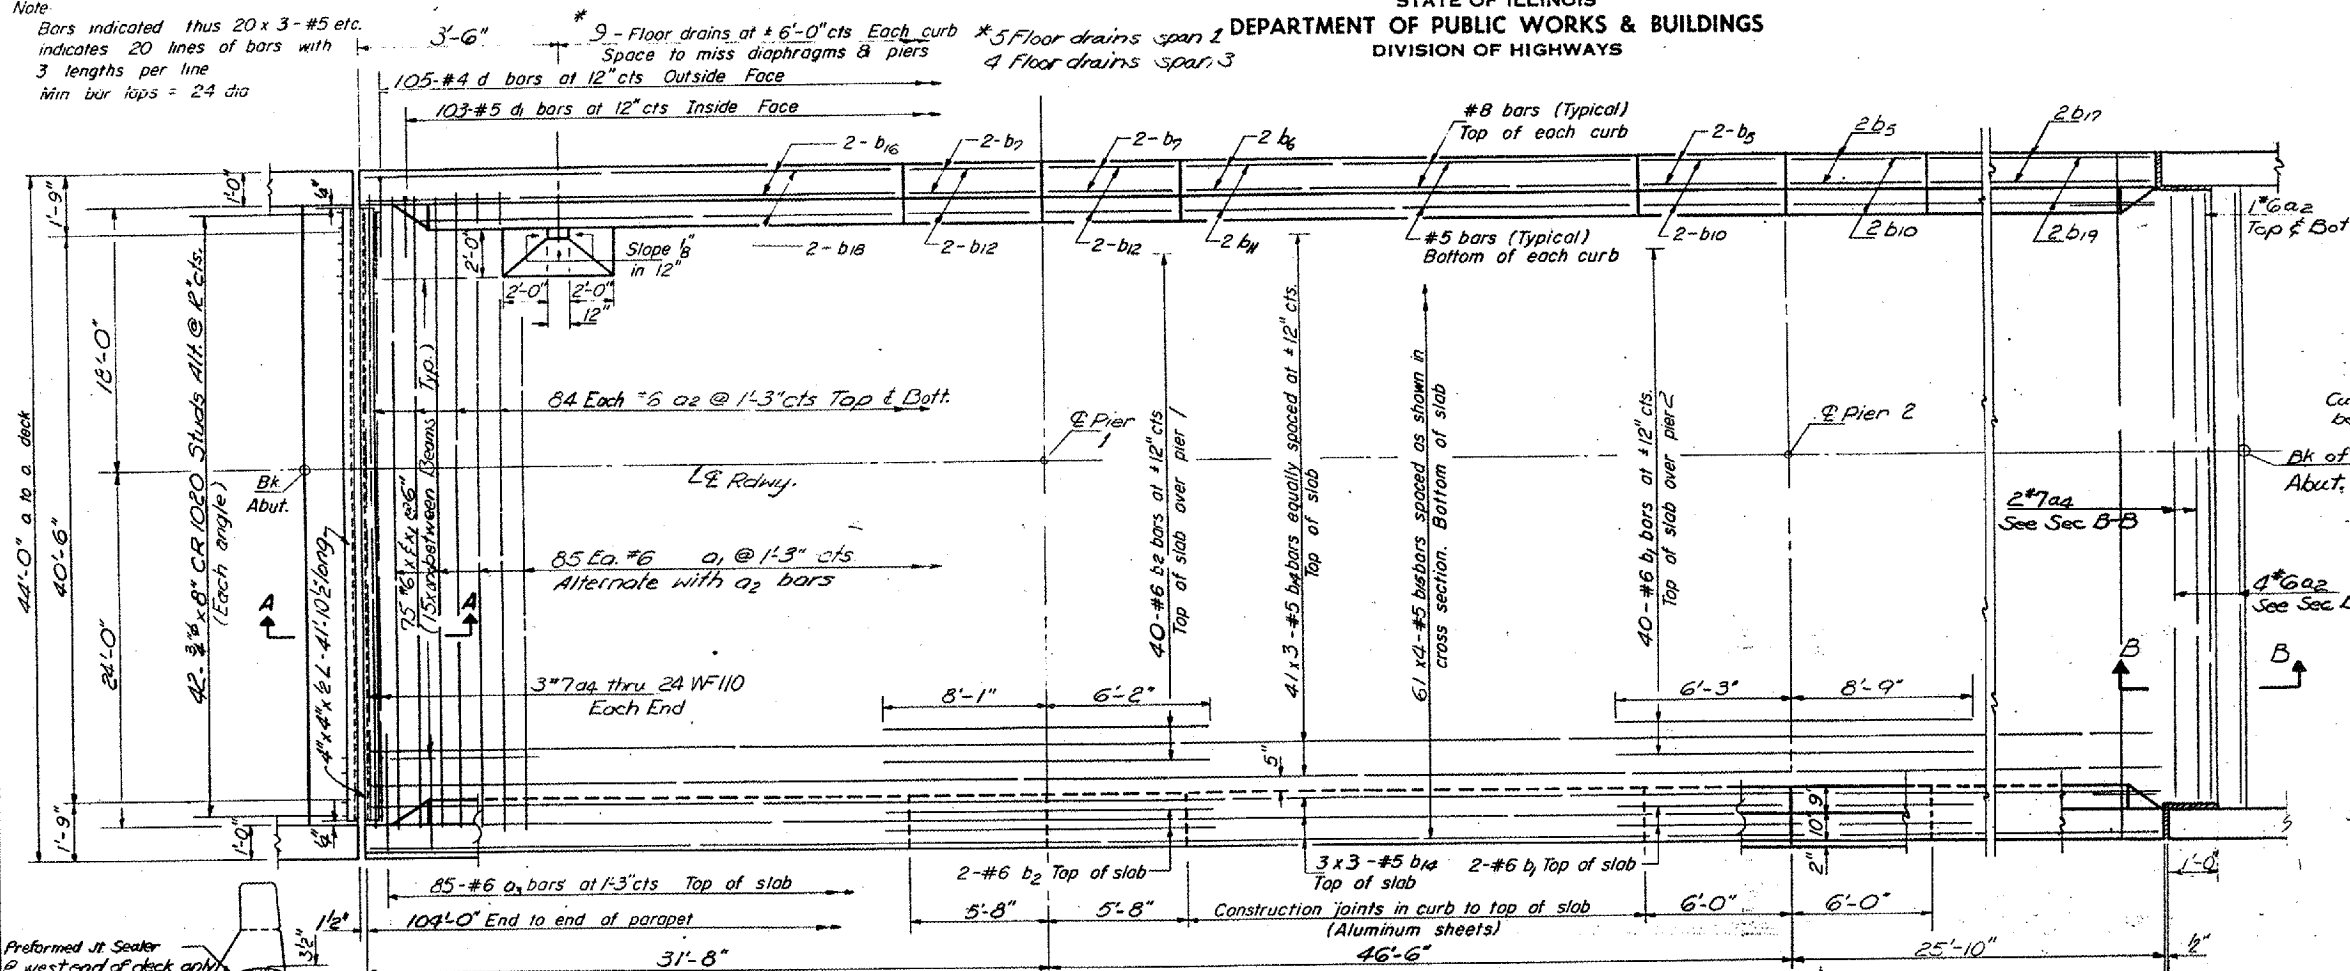 Note
Bars indicated thus 20 x 3 - #5 etc.
indicates 20 lines of bars with
3 lengths per line
Min bar laps = 24 dia
3'-6"
* 9 - Floor drains at ± 6'-0" cts Each curb
Space to miss diaphragms & piers
* 5 Floor drains span 1
4 Floor drains span 3
STATE OF ILLINOIS
DEPARTMENT OF PUBLIC WORKS & BUILDINGS
DIVISION OF HIGHWAYS
105-#4 d bars at 12" cts Outside Face
103-#5 d1 bars at 12" cts Inside Face
#8 bars (Typical)
Top of each curb
2-b16
2-b7
2-b7
2 b6
2-b5
2 b5
2 b17
2-b18
2-b12
2-b12
2 b11
#5 bars (Typical)
Bottom of each curb
2-b10
2 b10
2 b19
1 #6 a2
Top & Bot
1'-9"
1'-0"
2'-0"
Slope 1/8
in 12"
2'-0"
2'-0"
12"
44'-0" o to o deck
40'-6"
18'-0"
24'-0"
42-3/4"ϕ x 8" CR 1020 Studs Alt. @ 12" cts.
(Each angle)
4"x4"x1/2 L-41'-10 1/2 long
75 #6 x
@6"
between Beams Typ.)
84 Each #6 a2 @ 1'-3" cts Top & Bott.
℄ Pier
1
℄ Rdwy.
Bk
Abut.
85 Ea. #6 a1 @ 1'-3" cts.
Alternate with a2 bars
A
A
3 #7 a4 thru 24 WF 110
Each End
40-#6 b2 bars at ±12" cts
Top of slab over pier 1
41 x 3 - #5 b14 bars equally spaced at ±12" cts.
Top of slab
61 x 4 - #5 b15 bars spaced as shown in
cross section. Bottom of slab
40-#6 b1 bars at ±12" cts.
Top of slab over pier 2
℄ Pier 2
Bk of
Abut.
2 #7 a4
See Sec B-B
4 #6 a2
See Sec
B
B
8'-1"
6'-2"
6'-3"
8'-9"
5"
9"
10"
2"
1'-9"
1'-0"
2-#6 b2 Top of slab
3 x 3 - #5 b14
Top of slab
2-#6 b1 Top of slab
1'-0"
85-#6 a3 bars at 1'-3" cts Top of slab
5'-8"
5'-8"
Construction joints in curb to top of slab
(Aluminum sheets)
6'-0"
6'-0"
1 1/2"
104'-0" End to end of parapet
3 1/2"
Preformed Jt Sealer
@ west end of deck only
31'-8"
46'-6"
25'-10"
1/2"